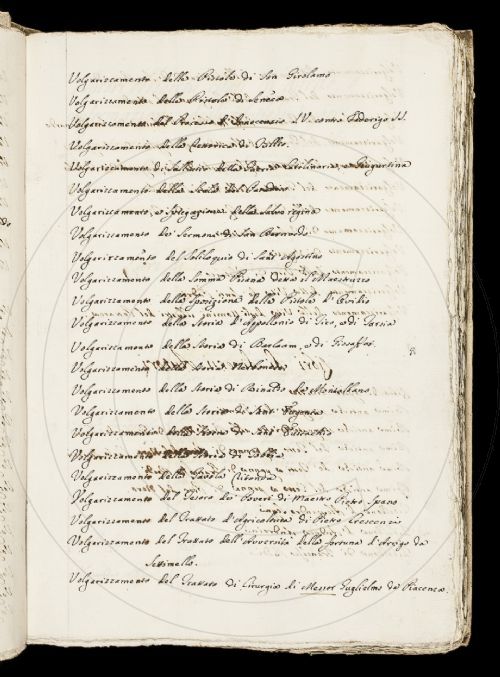 Volgarizzamento delle Pistole di San Girolamo
Volgarizzamento delle Pistole di Seneca
Volgarizzamento del Processo d'Innocenzio IV. contro Federigo II.
Volgarizzamento della Rettorica di Tullio
Volgarizzamento di Sallustio della Guerra Catilinaria, e Giugurtina
Volgarizzamento della Scala del Paradiso
Volgarizzamento, e sposizione della Salve regina
Volgarizzamento dei Sermoni di San Bernardo
Volgarizzamento del Soliloquio di Sant'Agostino
Volgarizzamento della Somma Pisana detta il Maestruzzo
Volgarizzamento della Sposizione della Pistole d'Ovidio
Volgarizzamento della Storia d'Appollonio di Tiro, e di Tarsia
Volgarizzamento della Storia di Barlaam, e di Giosaffat
Volgarizzamento della Storia Nerbonese
Volgarizzamento della Storia di Rinaldo da Montalbano
Volgarizzamento della Storia di Sant'
Volgarizzamento della Storia di Sant' Eustachio
Volgarizzamento della Storia di Tobia
Volgarizzamento della Tavola Ritonda
Volgarizzamento del Tesoro dei Poveri di Maestro Pietro Spano
Volgarizzamento del Trattato d'Agricoltura di Pietro Crescenzio
Volgarizzamento del Trattato dell'Avversità della fortuna d'Arrigo da
Settimello.
Volgarizzamento del Trattato di Cirurgia di Maestr Guglielmo da Piacenza